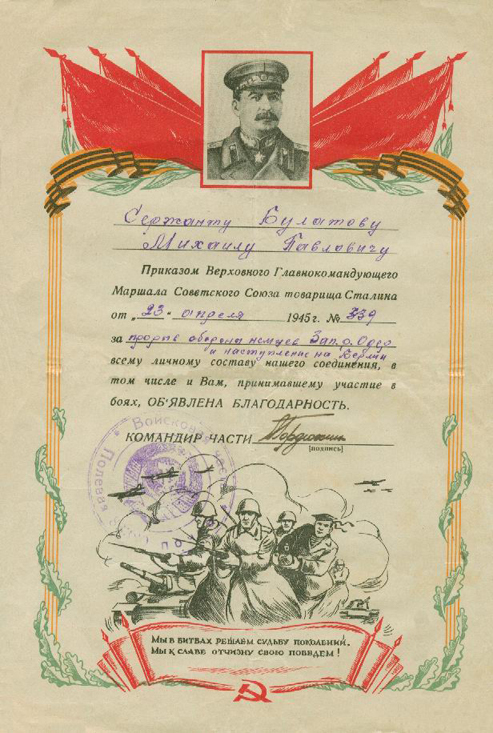 Сержанту Булатову
Михаилу Павловичу
Приказом Верховного Главнокомандующего
Маршала Советского Союза товарища Сталина
от „23" апреля 1945 г. № 339
за прорыв обороны немцев Зап. р. Одер
и наступление на Берлин
всему личному составу нашего соединения, в
том числе и Вам, принимавшему участие в
боях, ОБ'ЯВЛЕНА БЛАГОДАРНОСТЬ.
КОМАНДИР ЧАСТИ
(подпись)
Войсковая
Полевая
МЫ В БИТВАХ РЕШАЕМ СУДЬБУ ПОКОЛЕНИЙ.
МЫ К СЛАВЕ ОТЧИЗНУ СВОЮ ПОВЕДЕМ!